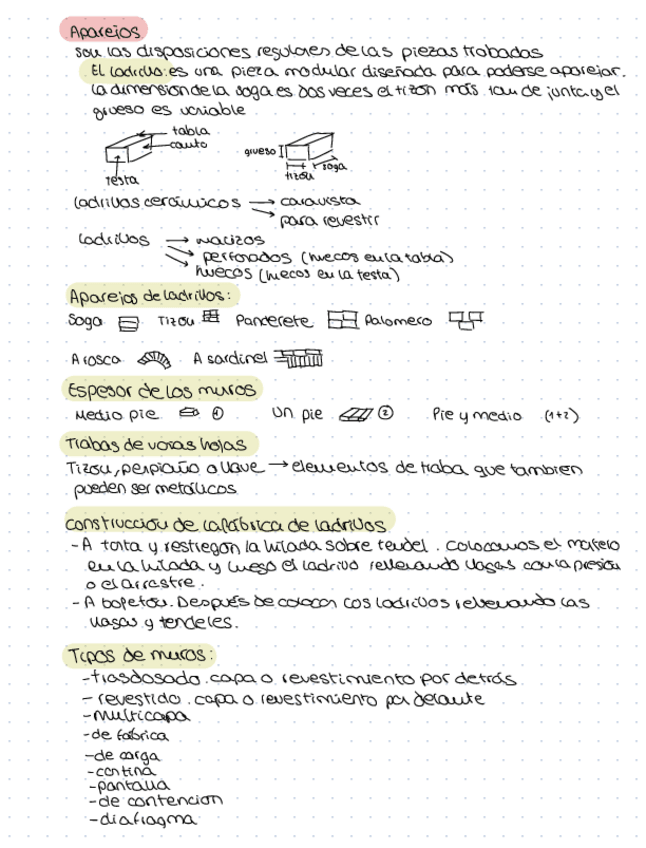 Aparejos
son las disposiciones regulares de las piezas trabadas
El ladrillo: es una pieza modular diseñada para poderse aparejar.
La dimension de la soga es dos veces el tizón más 1cm de junta y el
grueso es variable
tabla
canto
testa
grueso
soga
tizón
ladrillos cerámicos → caravista
→ para revestir
ladrillos → macizos
→ perforados (huecos en la tabla)
→ huecos (huecos en la testa)
Aparejos de ladrillos:
Soga Tizón Panderete Palomero
A rosca A sardinel
Espesor de los muros
Medio pie ① Un pie ② Pie y medio (1+2)
Trabas de varias hojas
Tizon, perpiaño o llave → elementos de traba que tambien
pueden ser metálicos
Construcción de la fábrica de ladrillos
- A torta y restregón la hilada sobre tendel. Colocamos el mortero
en la hilada y luego el ladrillo rellenando llagas con la presión
o el arrastre.
- A bofetón. Después de colocar los ladrillos rellenando las
llagas y tendeles.
Tipos de muros:
- trasdosado. capa o revestimiento por detrás
- revestido. capa o revestimiento por delante
- multicapa
- de fabrica
- de carga
- cortina
- pantalla
- de contencion
- diafragma